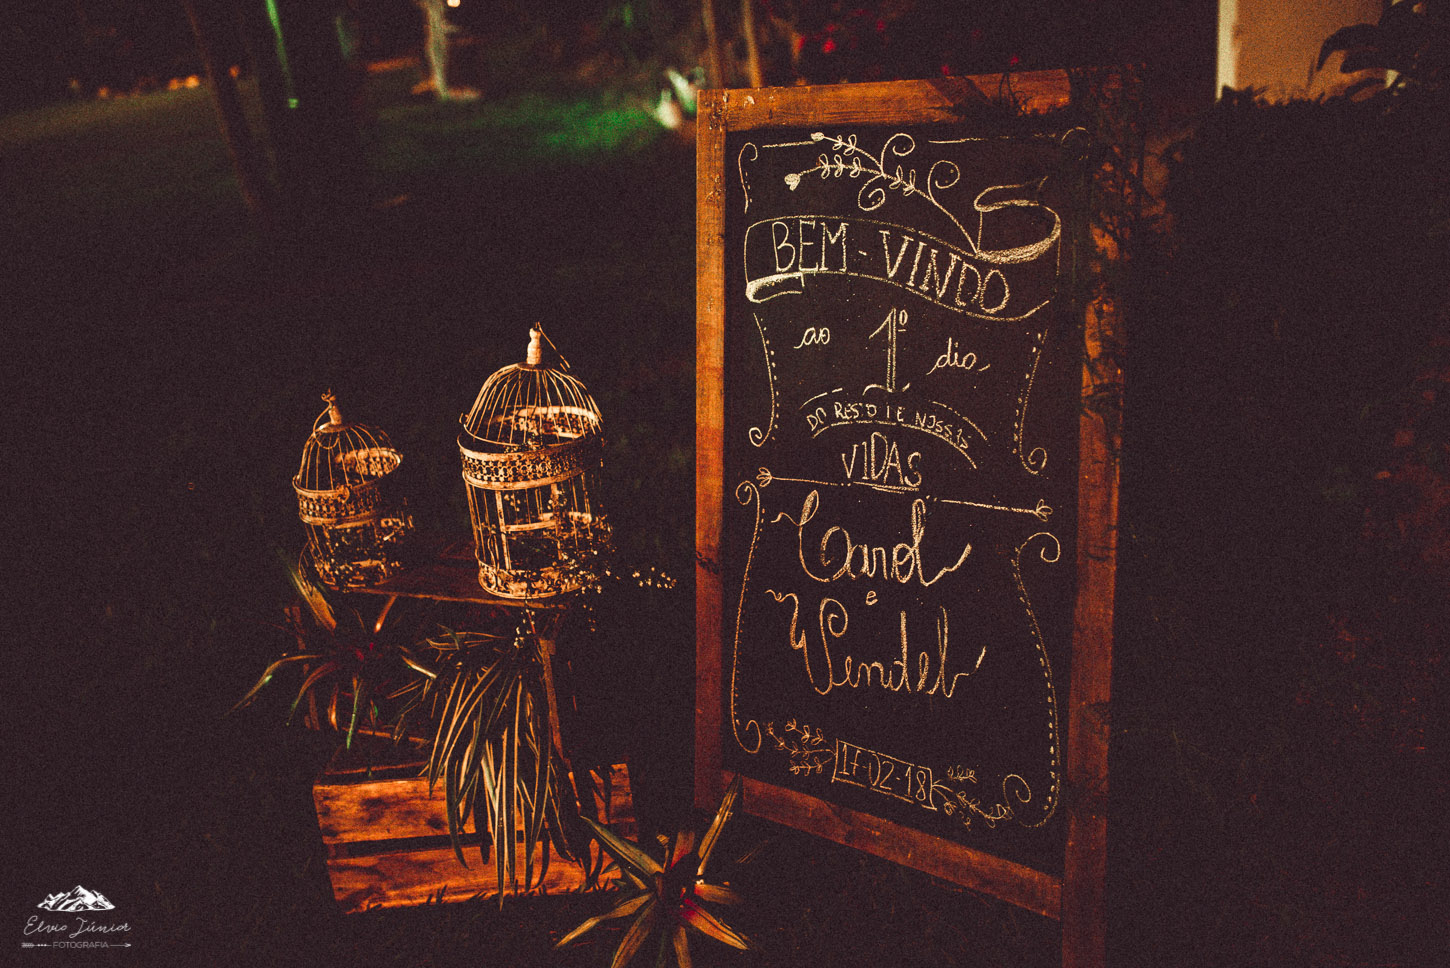 BEM-VINDO
ao 1º dia
DO RESTO DE NOSSAS
VIDAS
Carol
e
Wendel
17-02-18
Elvio Júnior
FOTOGRAFIA